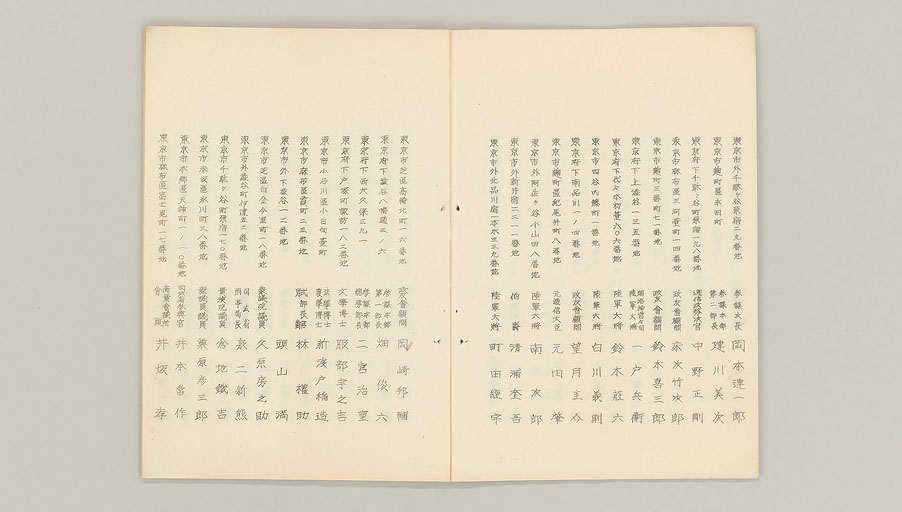 東京市外千駄ヶ谷原宿二九番地 參謀次長 岡本連一郎
東京市麹町區永田町 參謀本部第二部長 建川美次
東京府下千駄ヶ谷町原宿一九八番地 遞信政務次官 中野正剛
東京市麻布區三河臺町一四番地 政友會顧問 床次竹次郎
東京市麹町三番町七一番地 政友會顧問 鈴木喜三郎
東京府下上澁谷一三五番地 明治神宮宮司陸軍大將 一戸兵衛
東京府下代々木初臺六〇六番地 陸軍大將 鈴木莊六
東京市四谷內藤町一番地 陸軍大將 白川義則
東京府下南品川一ノ四番地 政友會顧問 望月圭介
東京市麹町區紀尾井町八番地 元遞信大臣 元田肇
東京市外阿佐ヶ谷小山四八番地 陸軍大將 南次郎
東京市外新井宿二三一一番地 伯爵 清浦奎吾
東京市外北品川宿一本木三三九番地 陸軍大將 町田經宇
東京市芝區高輪北町一六番地 政友會顧問 岡崎邦輔
東京府下澁谷八幡通三ノ六 參謀本部第一部長 畑俊六
東京府下西大久保三九一 參謀本部總務部長 二宮治重
東京府下戸塚町諏訪一八二番地 文學博士 服部宇之吉
東京市小石川區小日向臺町 法學博士農學博士 新渡戸稻造
東京市麻布區霞町二三番地 式部長官 林權助
東京市外下澁谷一二番地 頭山滿
東京市芝區白金今里町一八番地 衆議院議員 久原房之助
東京市外澁谷町伊達五二番地 司法省刑事局長 泉二新熊
東京市千駄ヶ谷町原宿一七〇番地 貴族院議員 倉地鐵吉
東京市赤坂區氷川町三八番地 衆議院議員 粟原彦三郎
東京市本郷區天神町一ノ一〇番地 井本常作
東京市麻布區富士見町一七番地 商業會議所會頭 井坂孝